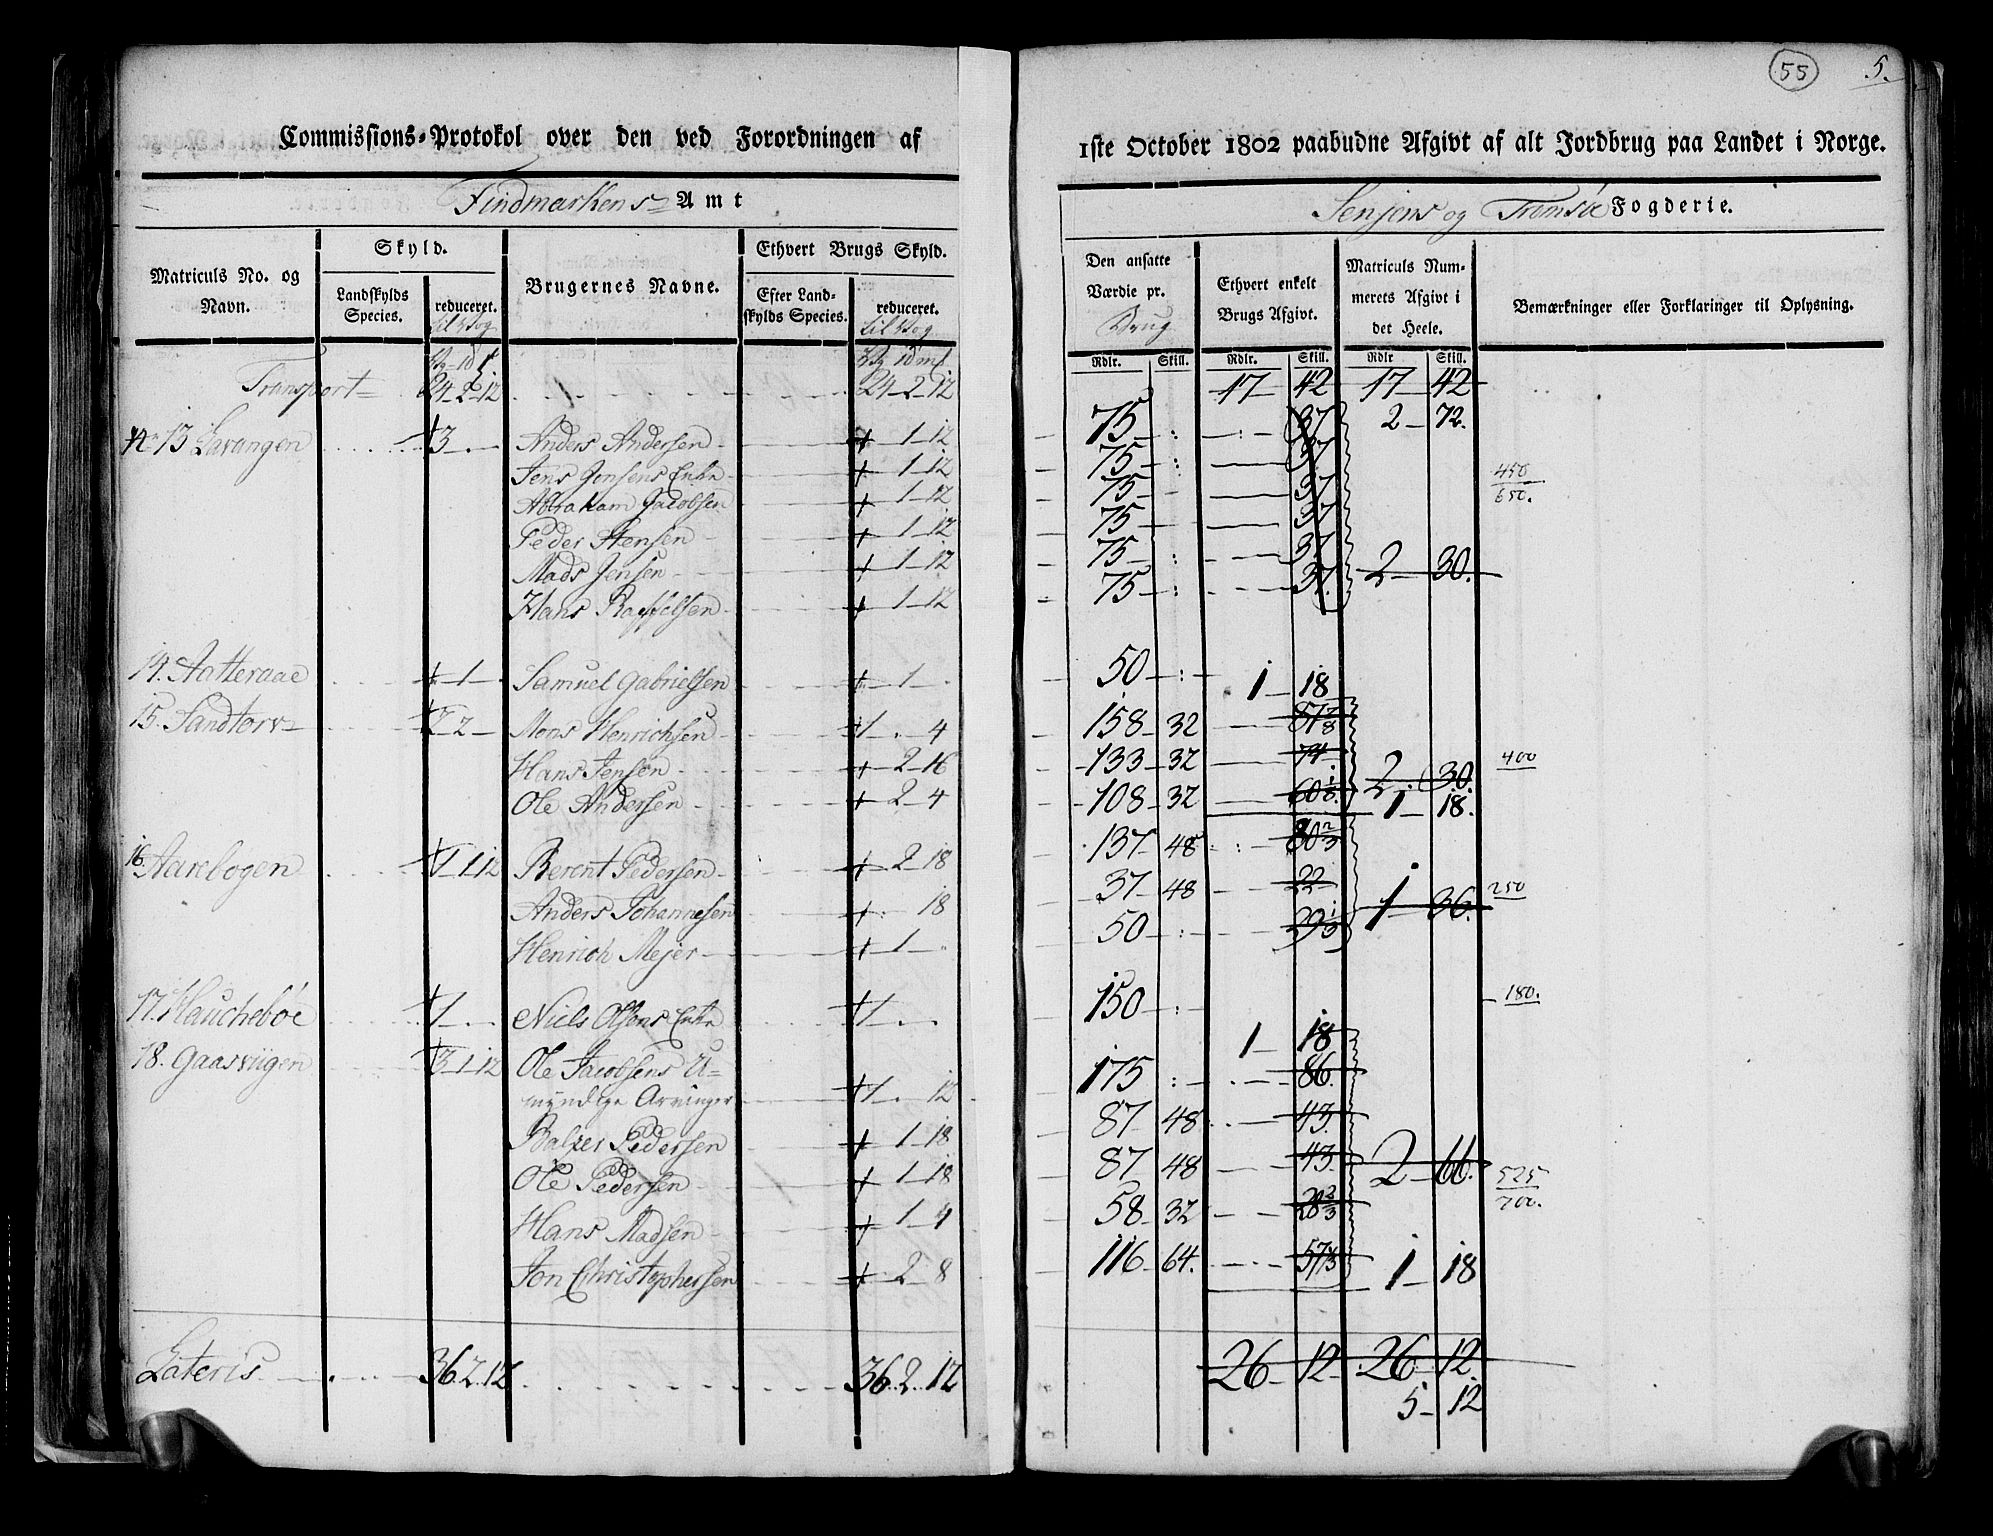 55 5.
Commissions-Protokol over den ved Forordningen af
1ste October 1802 paabudne Afgivt af alt Jordbrug paa Landet i Norge.
Findmarkens Amt
Senjens og Tromsöe Fogderie.
Matriculs No. og Navn.
Skyld.
Landskylds Species.
reduceret.
Brugernes Navne.
Ethvert Brugs Skyld.
Efter Landskylds Species.
reduceret.
Den ansatte Værdie pr. Brug
Ethvert enkelt Brugs Afgivt.
Matriculs Nummerets Afgivt i det Heele.
Bemærkninger eller Forklaringer til Oplysning.
Rdlr. Skill. Rdlr. Skill. Rdlr Skill.
Transport 24 2 12 24 2 12 17 42 17 42
No 13 Lavangen 3 Anders Andersen 1 12 75 37 2 72.
Jens Jensens Enke 1 12 75 37 450
Abraham Jacobsen 1 12 75 37 650.
Peder Stensen 1 12 75 37
Mads Jensen 1 12 75 37 2 30.
Hans Raffelsen 1 12 75 37.
14. Aatteraae 1 Samuel Gabrielsen 1 50 1 18
15. Sandtorv 2 2 Mons Henrichsen 1 . 4 158 32
Hans Jensen 2 16 133 32 74 2 30. 400
Ole Andersen 2 4 108 32 1 18.
16. Aarebogen 1 1 12 Berent Pedersen 2 18 137 48 80 2/3
Anders Johannesen 18 37 48 22 1 36. 250
Henrich Mejer 1 50 29 1/3
17. Hauchebøe 1 Niels Olsens Enke 1 150 1 18 180.
18. Gaasviigen 3 1 12 Ole Jacobsens U-
myndige Arvinger 1 . 12 175 86.
Balzer Pedersen 1 18 87 48 43.
Ole Pedersen 1 18 87 48 43. 2 66. 525
Hans Madsen 1 4 58 32 28 2/3 700.
Jon Christophersen 2 8 116 64. 57 1/3 1 18
Lateris 36 2 12 36 2 12 26 12 26 12.
5 12